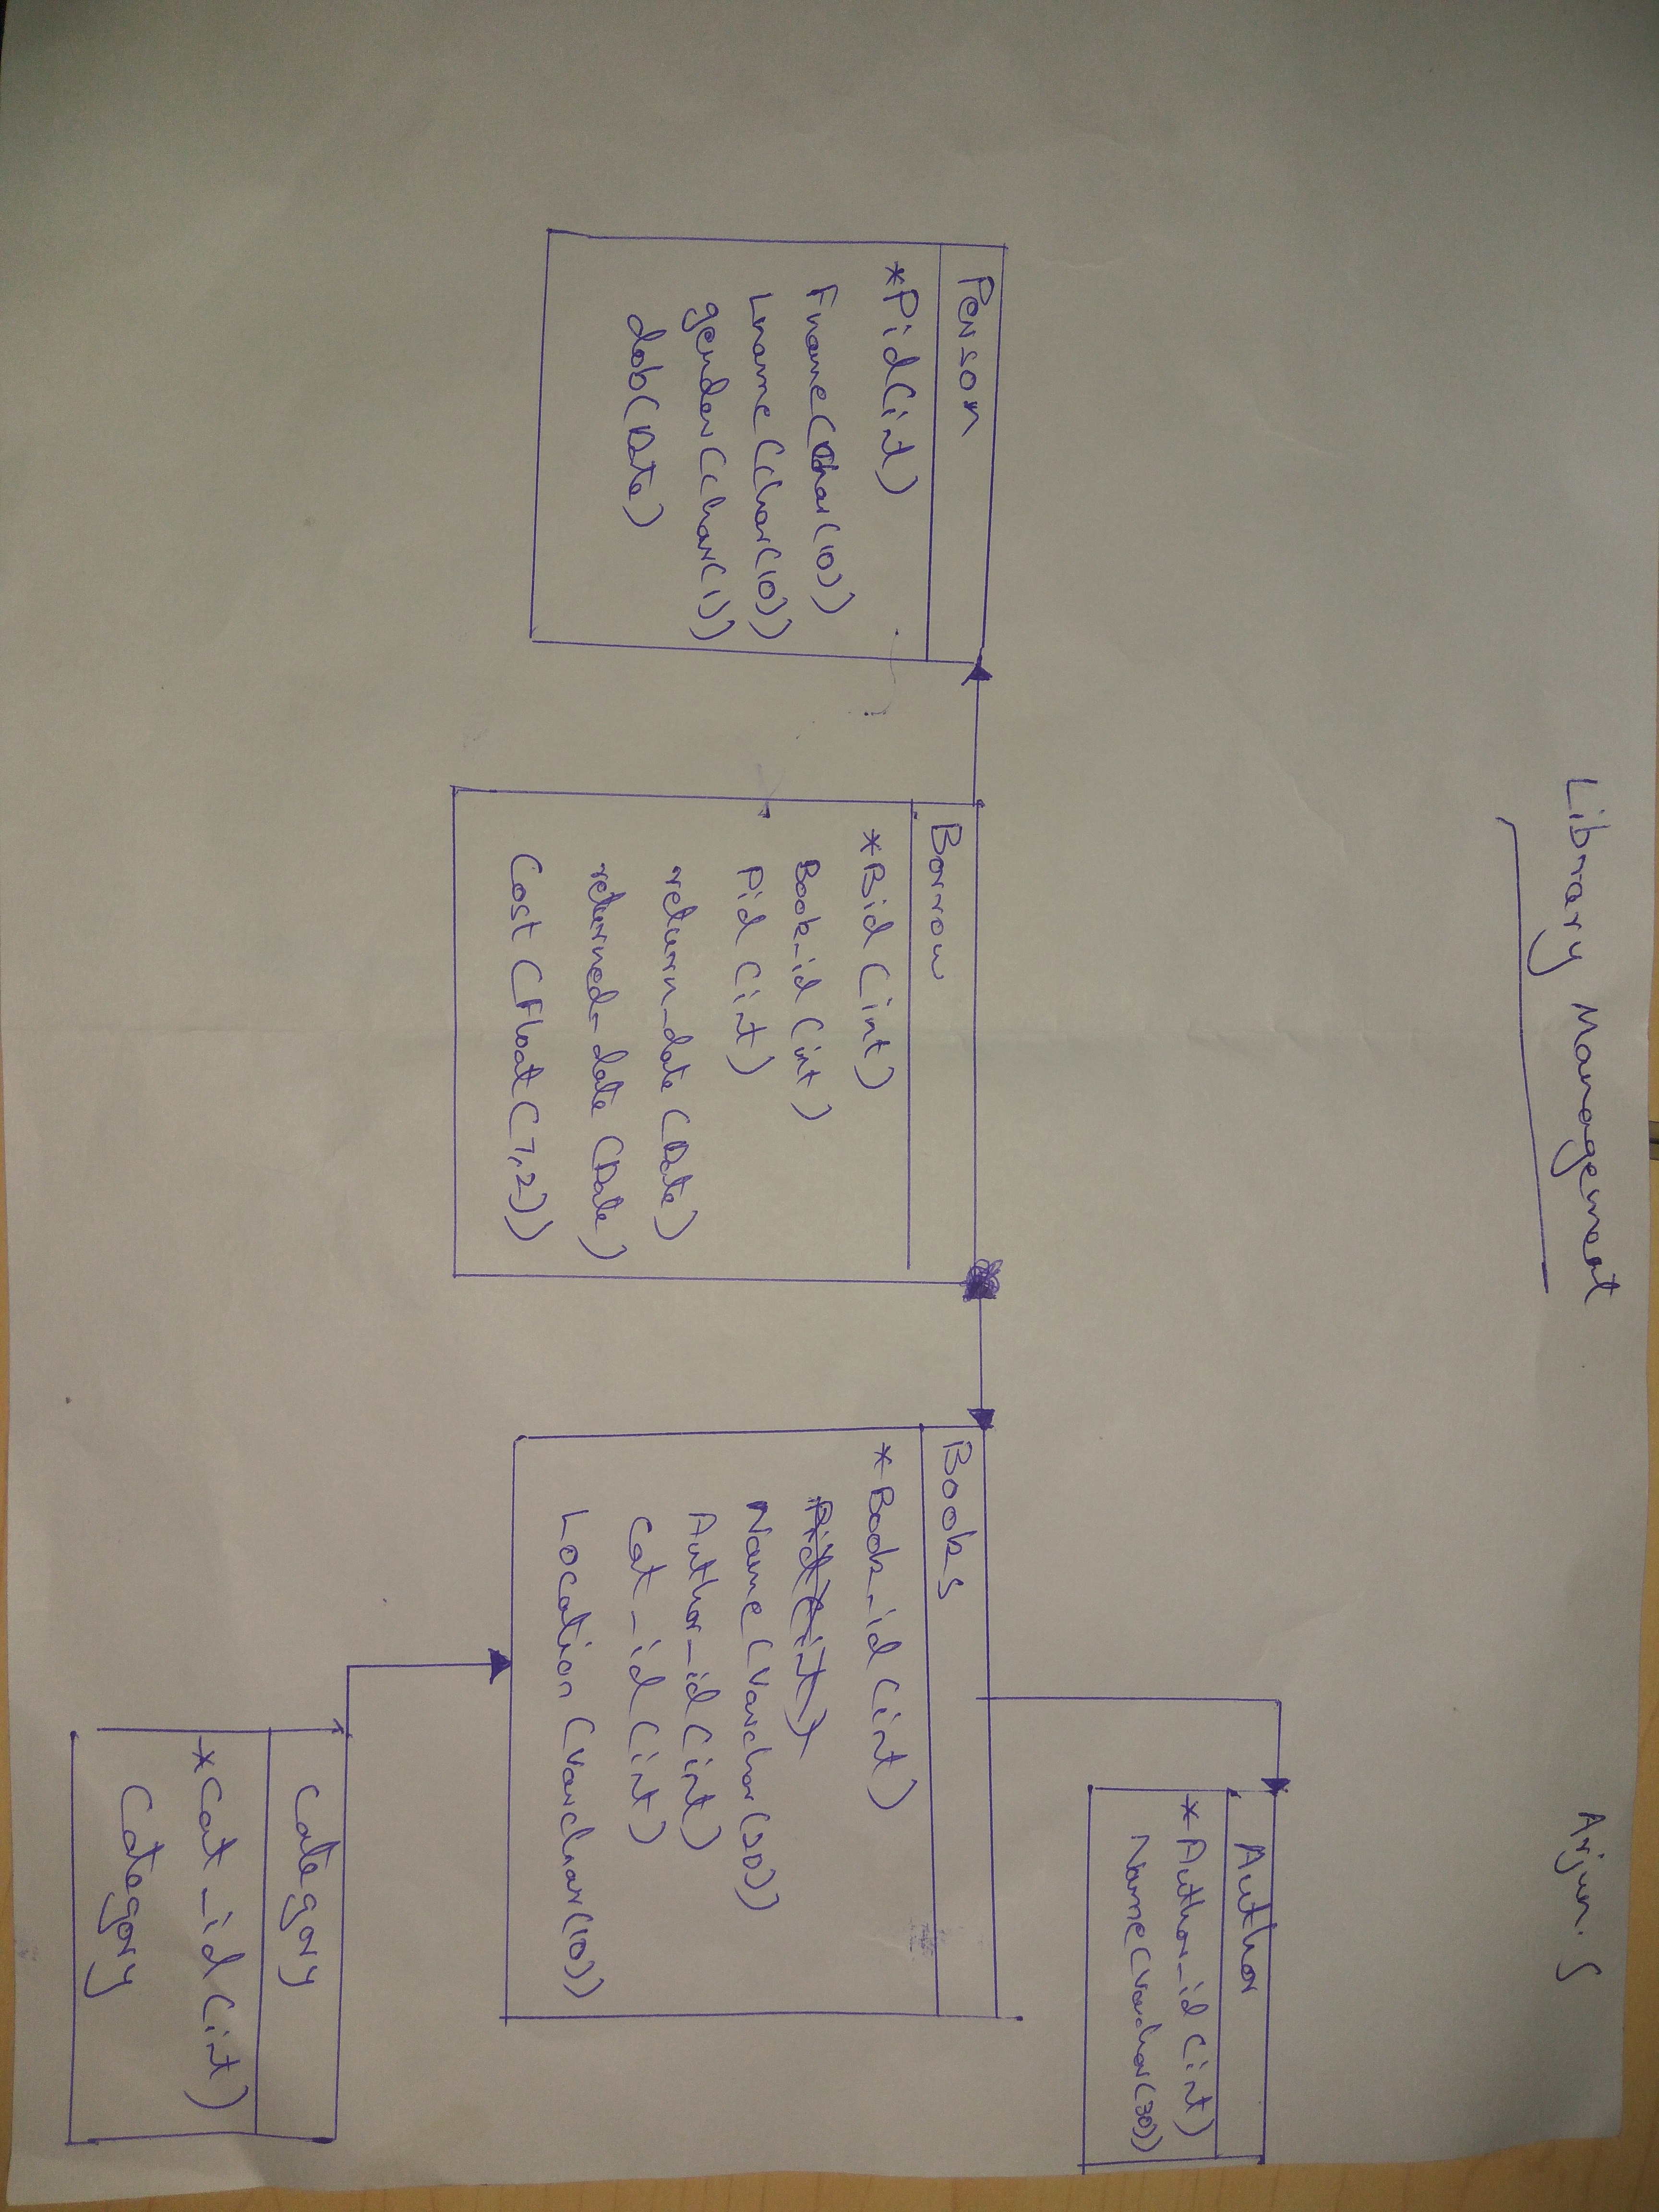 Library Management
Arjun. S
Person
*Pid(int)
Fname(Char(10))
Lname(Char(10))
gender(Char(1))
dob(Date)
Borrow
*Bid(int)
Book_id(int)
Pid(int)
return_date(Date)
returned_date(Date)
Cost(Float(7,2))
Books
*Book_id(int)
Pid(int)
Name(Varchar(30))
Author_id(int)
Cat_id(int)
Location(Varchar(10))
Author
*Author_id(int)
Name(Varchar(30))
Category
*Cat_id(int)
Category